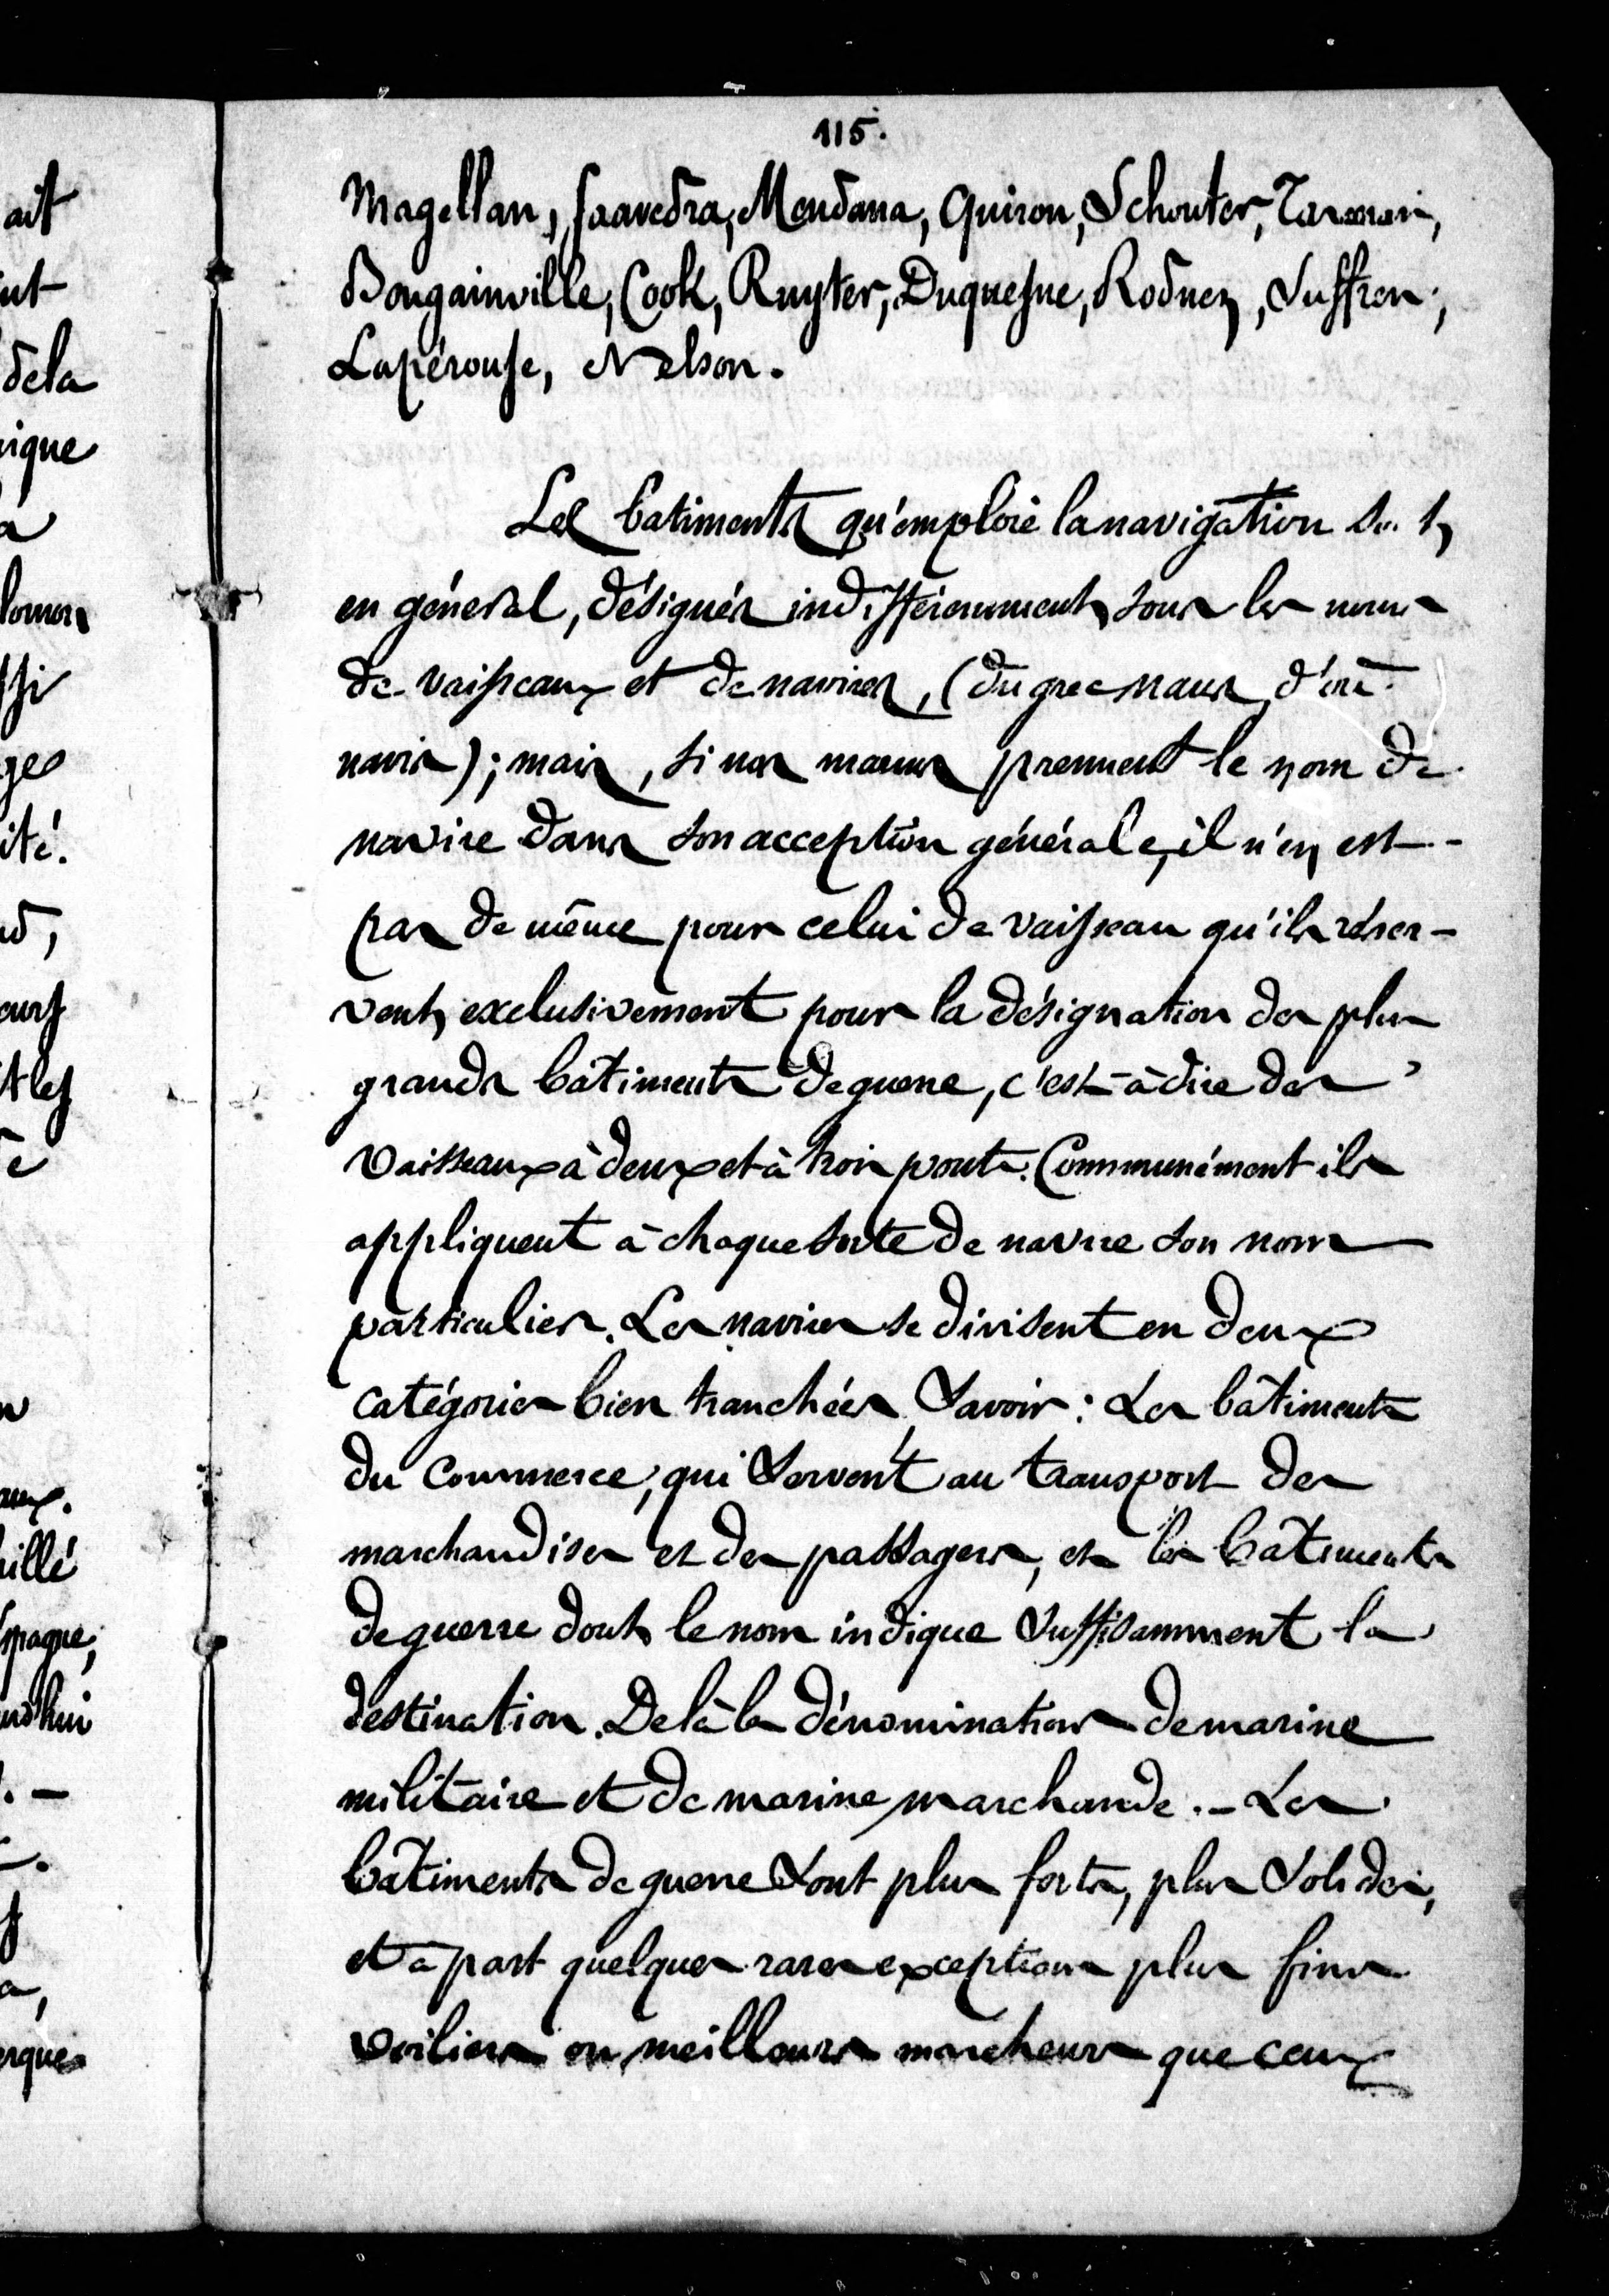 115.
Magellan, Saavedra, Mendana, Quiron, Schouter,
Bougainville, Cook, Ruyter, Duquesne, Rodney, Suffren,
Lapérouse, Nelson.
Les batiments qu'emploie la navigation sont,
en général, désignés indifféremment sous les noms
de vaisseaux et de navires, (du grec naus, d'où
navis); mais, si nos marins prennent le nom de
navire dans son acception générale, il n'en est
pas de même pour celui de vaisseau qu'ils réser-
vent exclusivement pour la désignation des plus
grands bâtiments de guerre, c'est-à dire des
vaisseaux à deux et à trois ponts. Communément ils
appliquent à chaque sorte de navire son nom
particulier. Les navires se divisent en deux
catégories bien tranchées, Savoir: Les bâtiments
du Commerce, qui Servent au transport des
marchandises et des passagers, et les bâtiments
de guerre dont le nom indique Suffisamment la
destination. De là la dénomination de marine
militaire et de marine marchande. - Les
bâtiments de guerre Sont plus forts, plus Solides,
et à part quelques rares exceptions plus fins
voiliers ou meilleurs marcheurs que ceux
ait
ut
dela
ique
a
ssi
ges
ité.
t les
aux.
illé
spagne,
urd'hui
. -
a,
erques